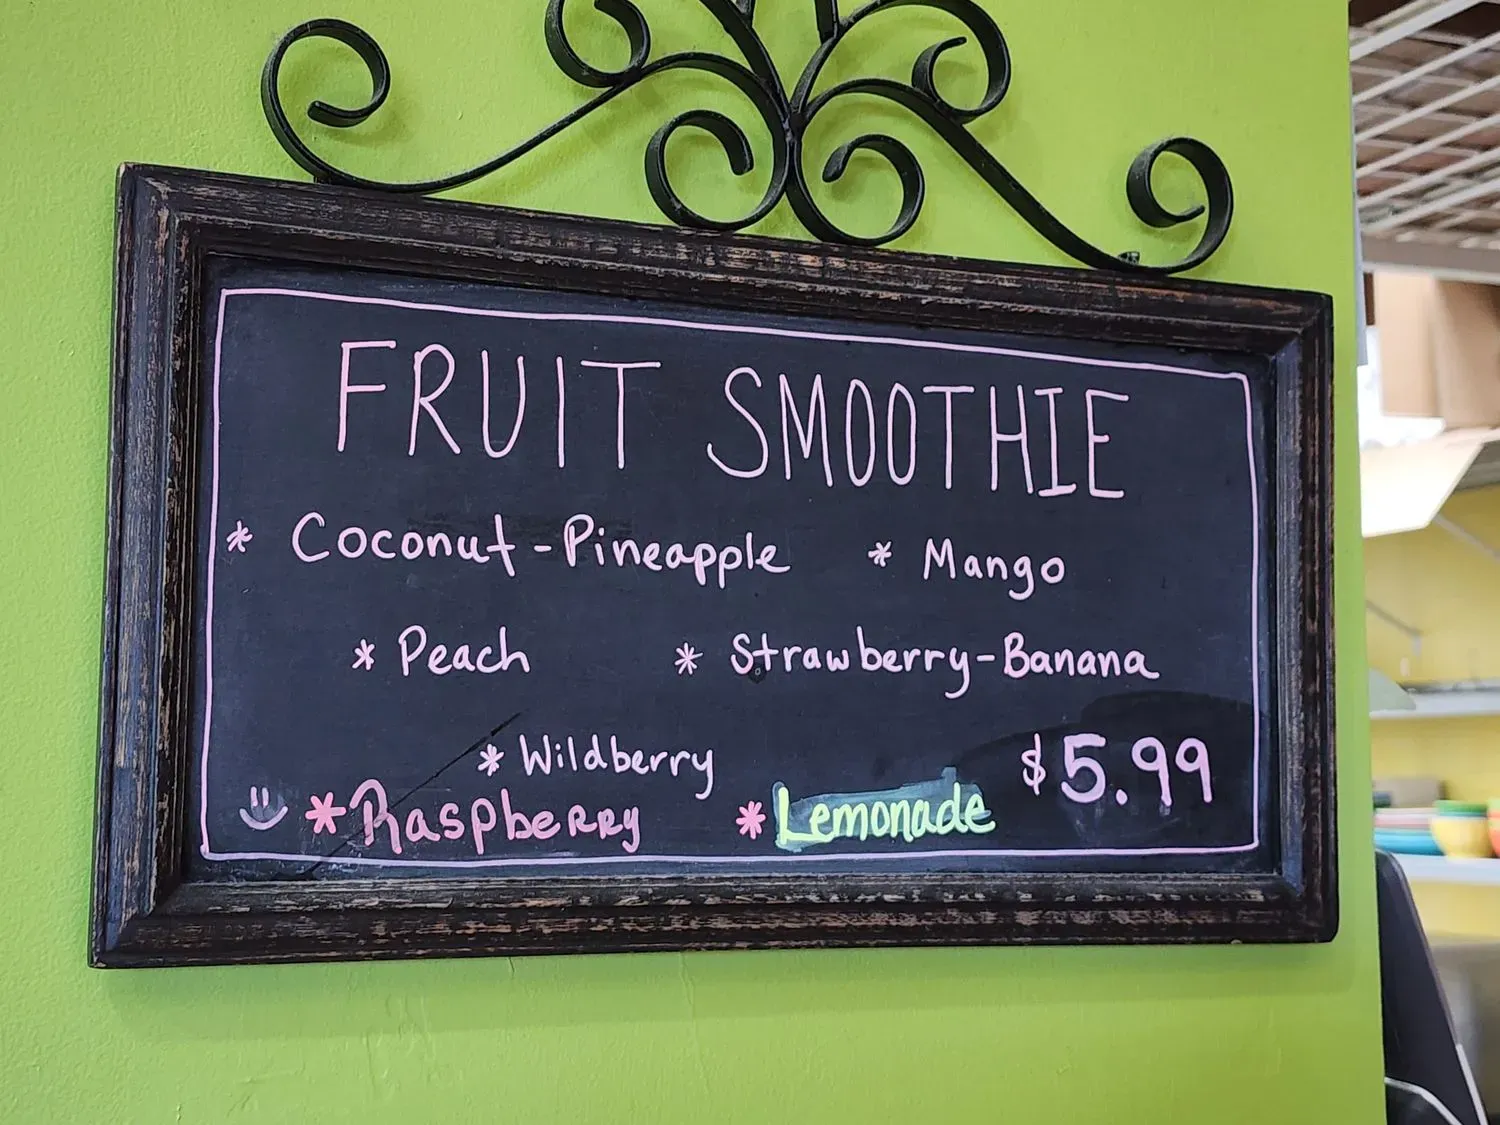 FRUIT SMOOTHIE
* Coconut-Pineapple * Mango
* Peach * Strawberry-Banana
* Wildberry $5.99
* Raspberry * Lemonade